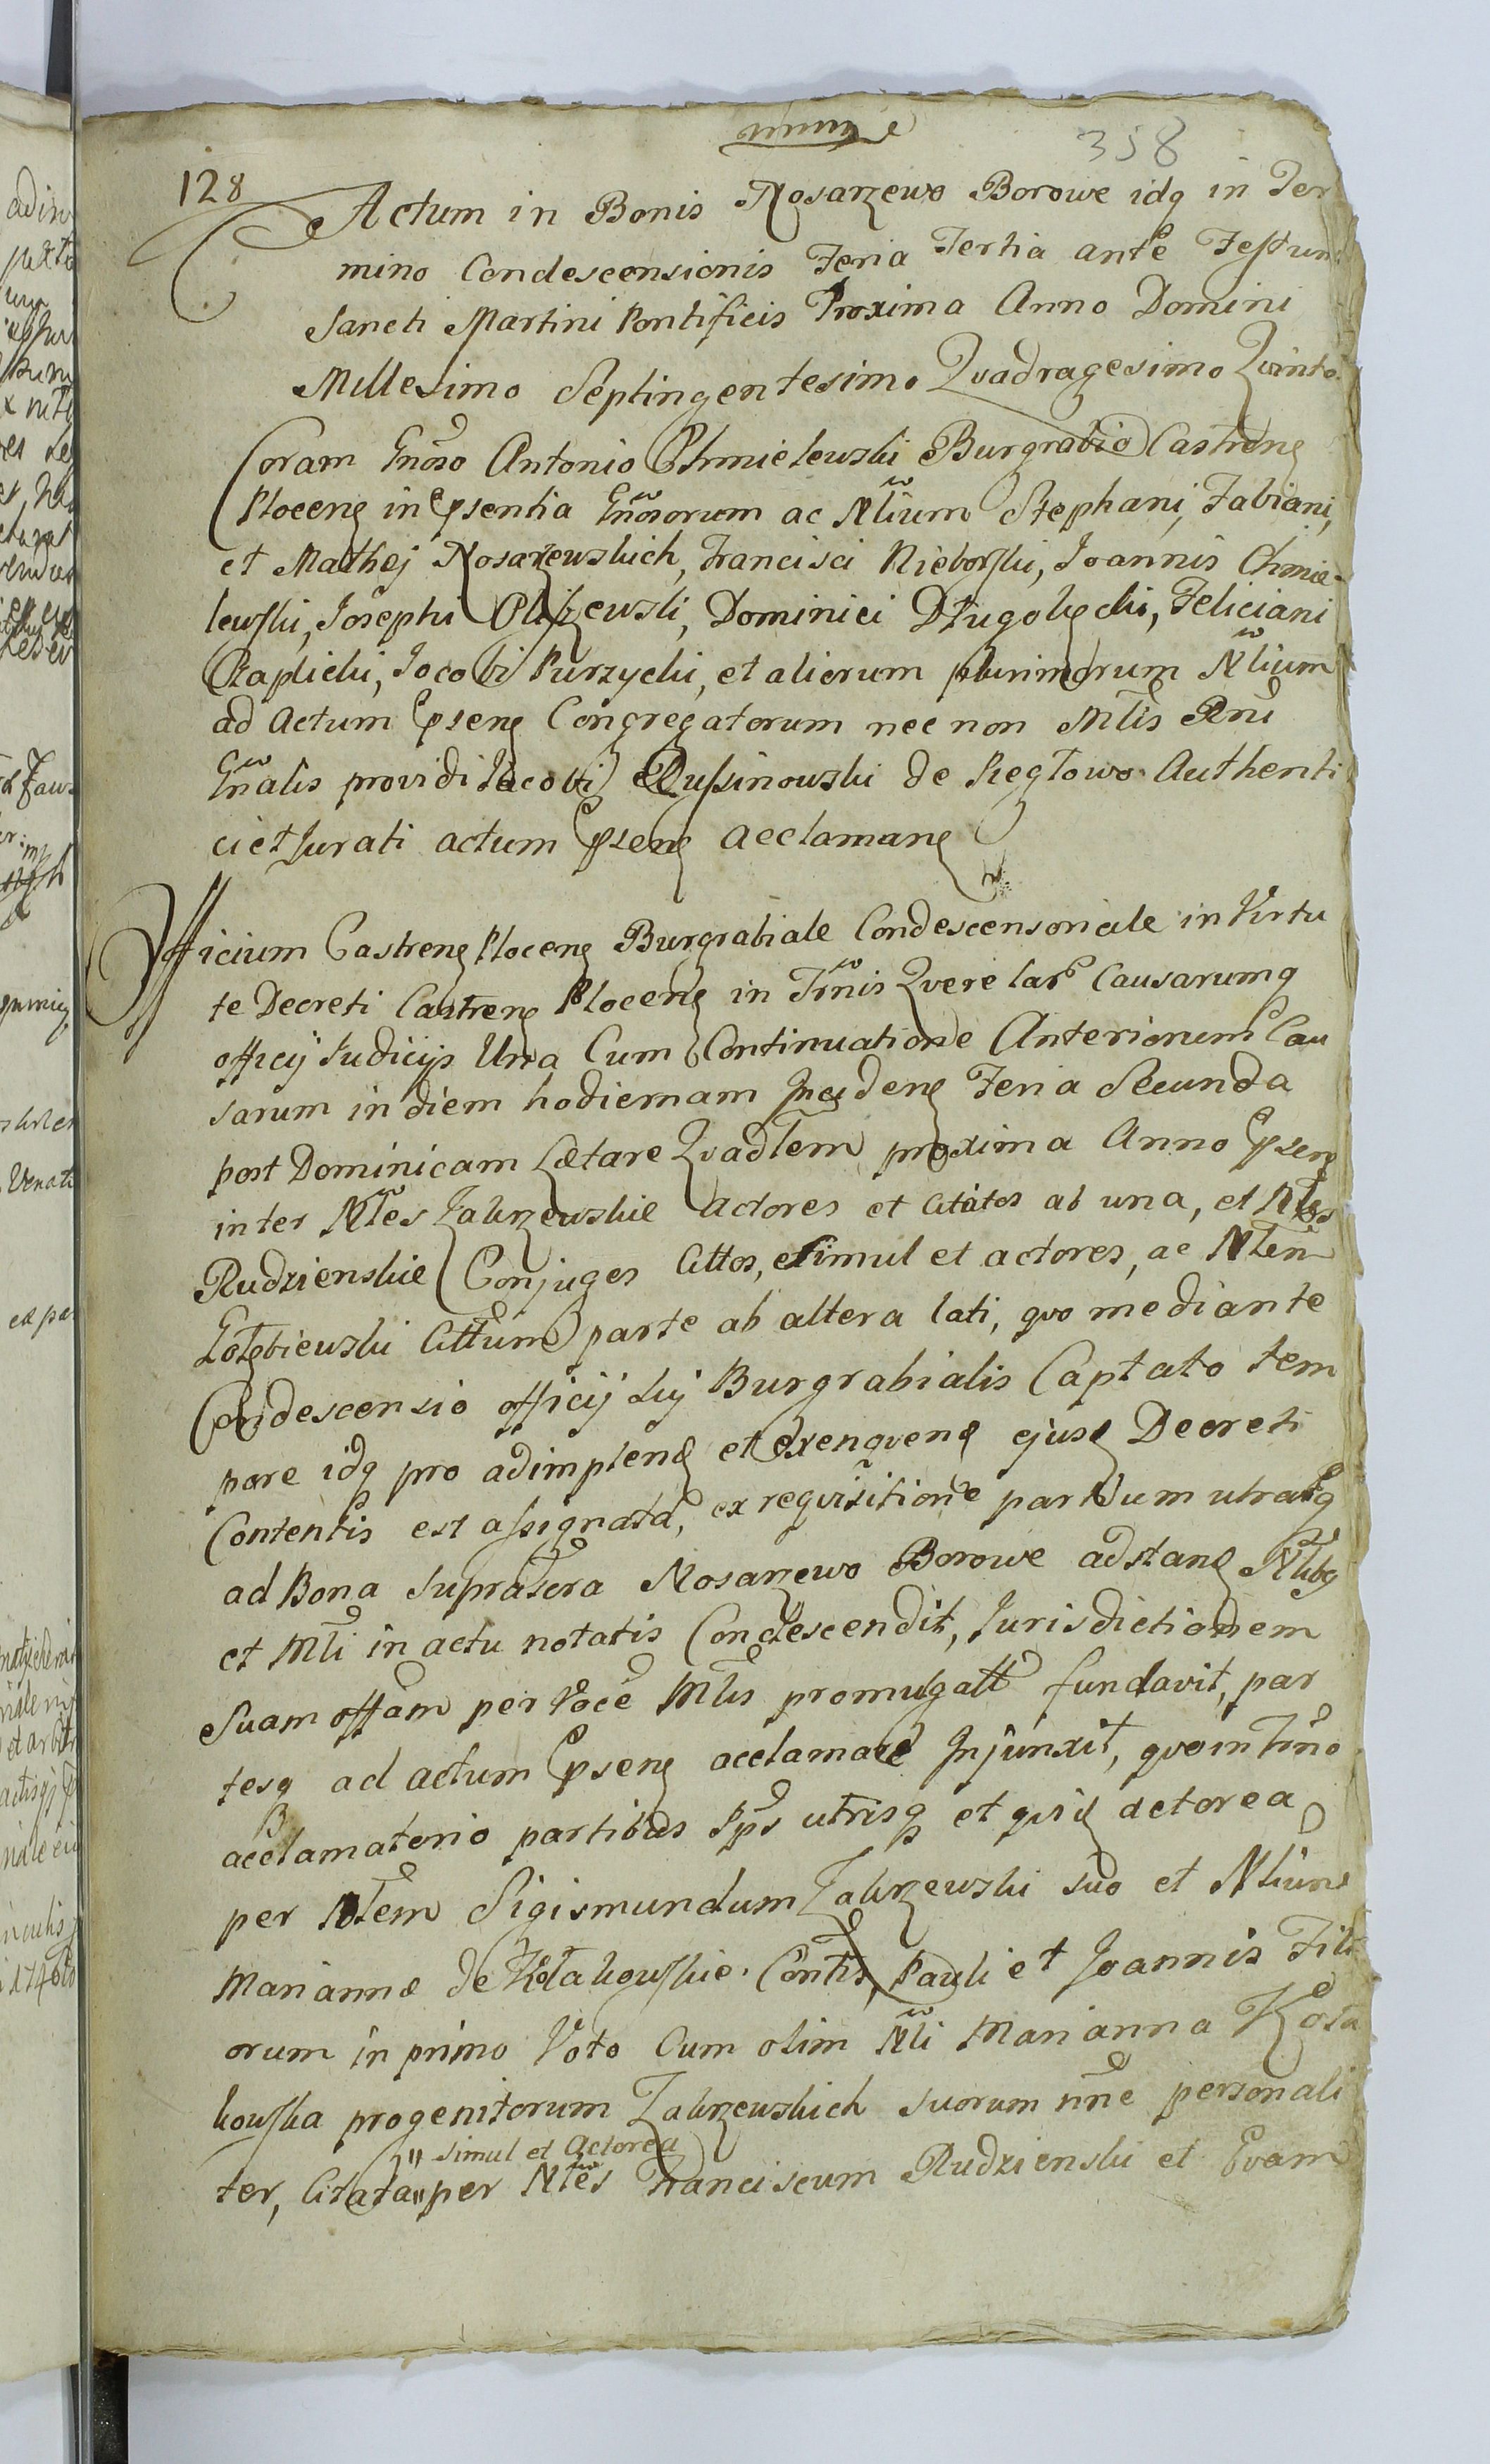 358
128
Actum in Bonis Nosarzewo Borowe idq in Ter
mino Condescensionis Feria Tertia ante Festum
Sancti Martini Pontificis Proxima Anno Domini
Millesimo Septingentesimo Qvadragesimo Qvinto.
Coram Gnoso Antonio Chmielewski Burgrabio Castren
Plocen in Psentia Gnosorum ac Nlium Stephani, Fabiani,
et Mathej Nosarzewskich, Francisci Nieborski, Joannis Chmie-
lewski, Josephi Dominici Długołęcki, Feliciani
Jacobi Purzycki, et aliorum plurimorum Nlium
ad Actum Psens Congregatorum nec non Mlis Rni
Gnalis providi Jacobi de Reglowo Authenti
ci et Jurati actum Psens acclamans
Officium Castren Plocen Burgrabiale Condescensoriale in Virtu
te Decreti Castren Plocen in Trnis Qverelar Causarumq
officij Judicijs Una Cum Continuatione Anteriorum Cau
sarum in diem hodiernam Inciden Feria Secunda
post Dominicam Lætare Qvadlem proxima Anno Psen
inter Nles Zakrzewskie Actores et Citatos ab una, et Nles
Rudzienskie Conjuges Cittos, et simul et actores, ac Nlem
Gołębiewski Cittum parte ab altera lati, qvo mediante
Condescensio officij sui Burgrabialis Captato tem
pore idq pro adimplend et exenqvend ejusd Decreti
Contentis est assignata, ex reqvisitione partium utrarq
ad Bona suprascra Nosarzewo Borowe adstan Nlibq
et Mli in actu notatis Condescendit, Jurisdictionem
Suam offam per Voce Mlis promulgatt fundavit, par
tesq ad actum Psens acclamare Injunxit, qvo in Trno
acclamatorio partibus Ips utrisq et qvid actorea
per Nlem Sigismundum Zakrzewski suo et Nlium
Mariannæ de Kołakowskie Contis, Pauli et Joannis Fili
orum in primo Voto Cum olim Nli Marianna Koła
kowska progenitorum Zakrzewskich suorum nne personali
" simul et Actorea
ter, Citata " per Nles Franciscum Rudzienski et Evam